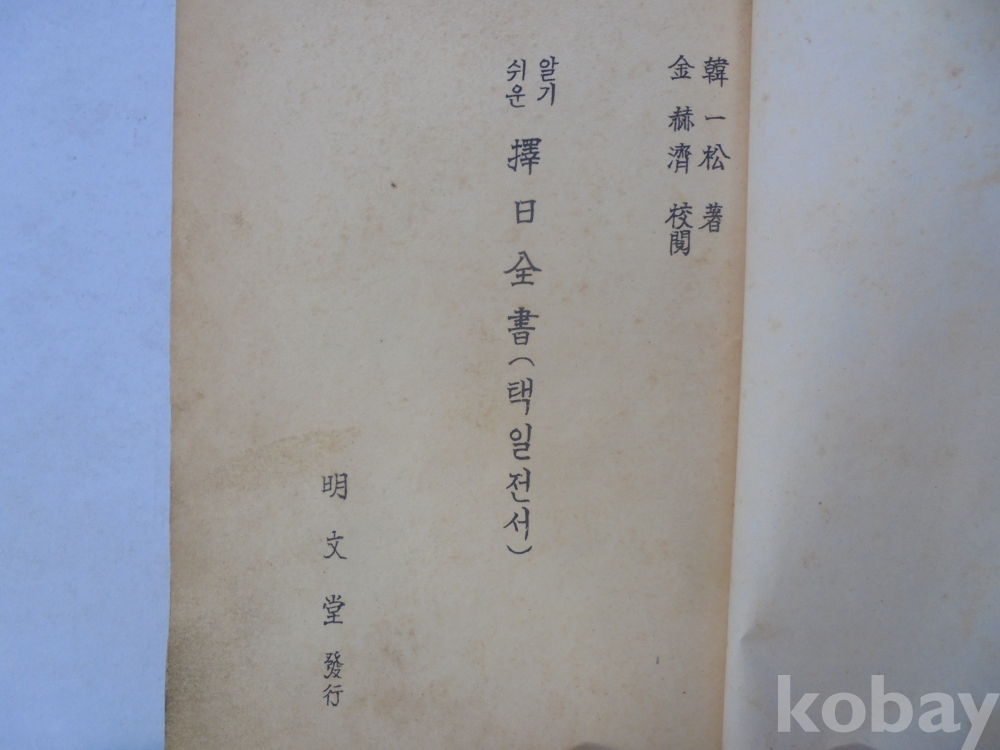 韓一松 著
金赫濟 校閱
알기
쉬운
擇日全書(택일전서)
明文堂 發行
kobay